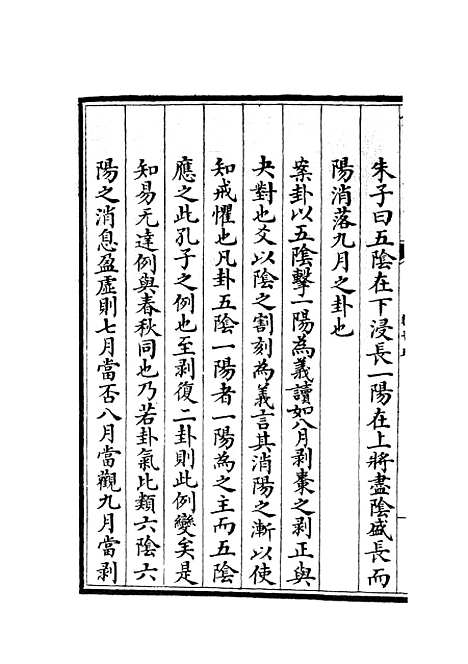 朱子曰五陰在下浸長一陽在上將盡陰盛長而
陽消落九月之卦也
案卦以五陰擊一陽為義讀如八月剥棗之剥正與
夬對也爻以陰之割刻為義言其消陽之漸以使
知戒懼也凡卦五陰一陽者一陽為之主而五陰
應之此孔子之例也至剥復二卦則此例變矣是
知易无達例與春秋同也乃若卦氣比類六陰六
陽之消息盈虛則七月當否八月當觀九月當剥